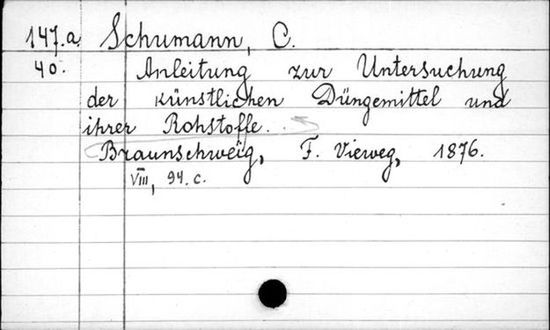 147.a. Schumann, C.
40. Anleitung zur Untersuchung
der künstlichen Düngemittel und
ihrer Rohstoffe.
Braunschweig, F. Vieweg, 1876.
VIII, 94. c.